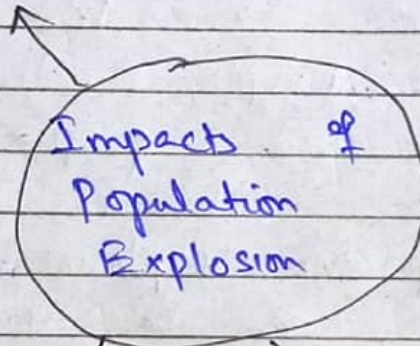 Impacts of
Population
Explosion